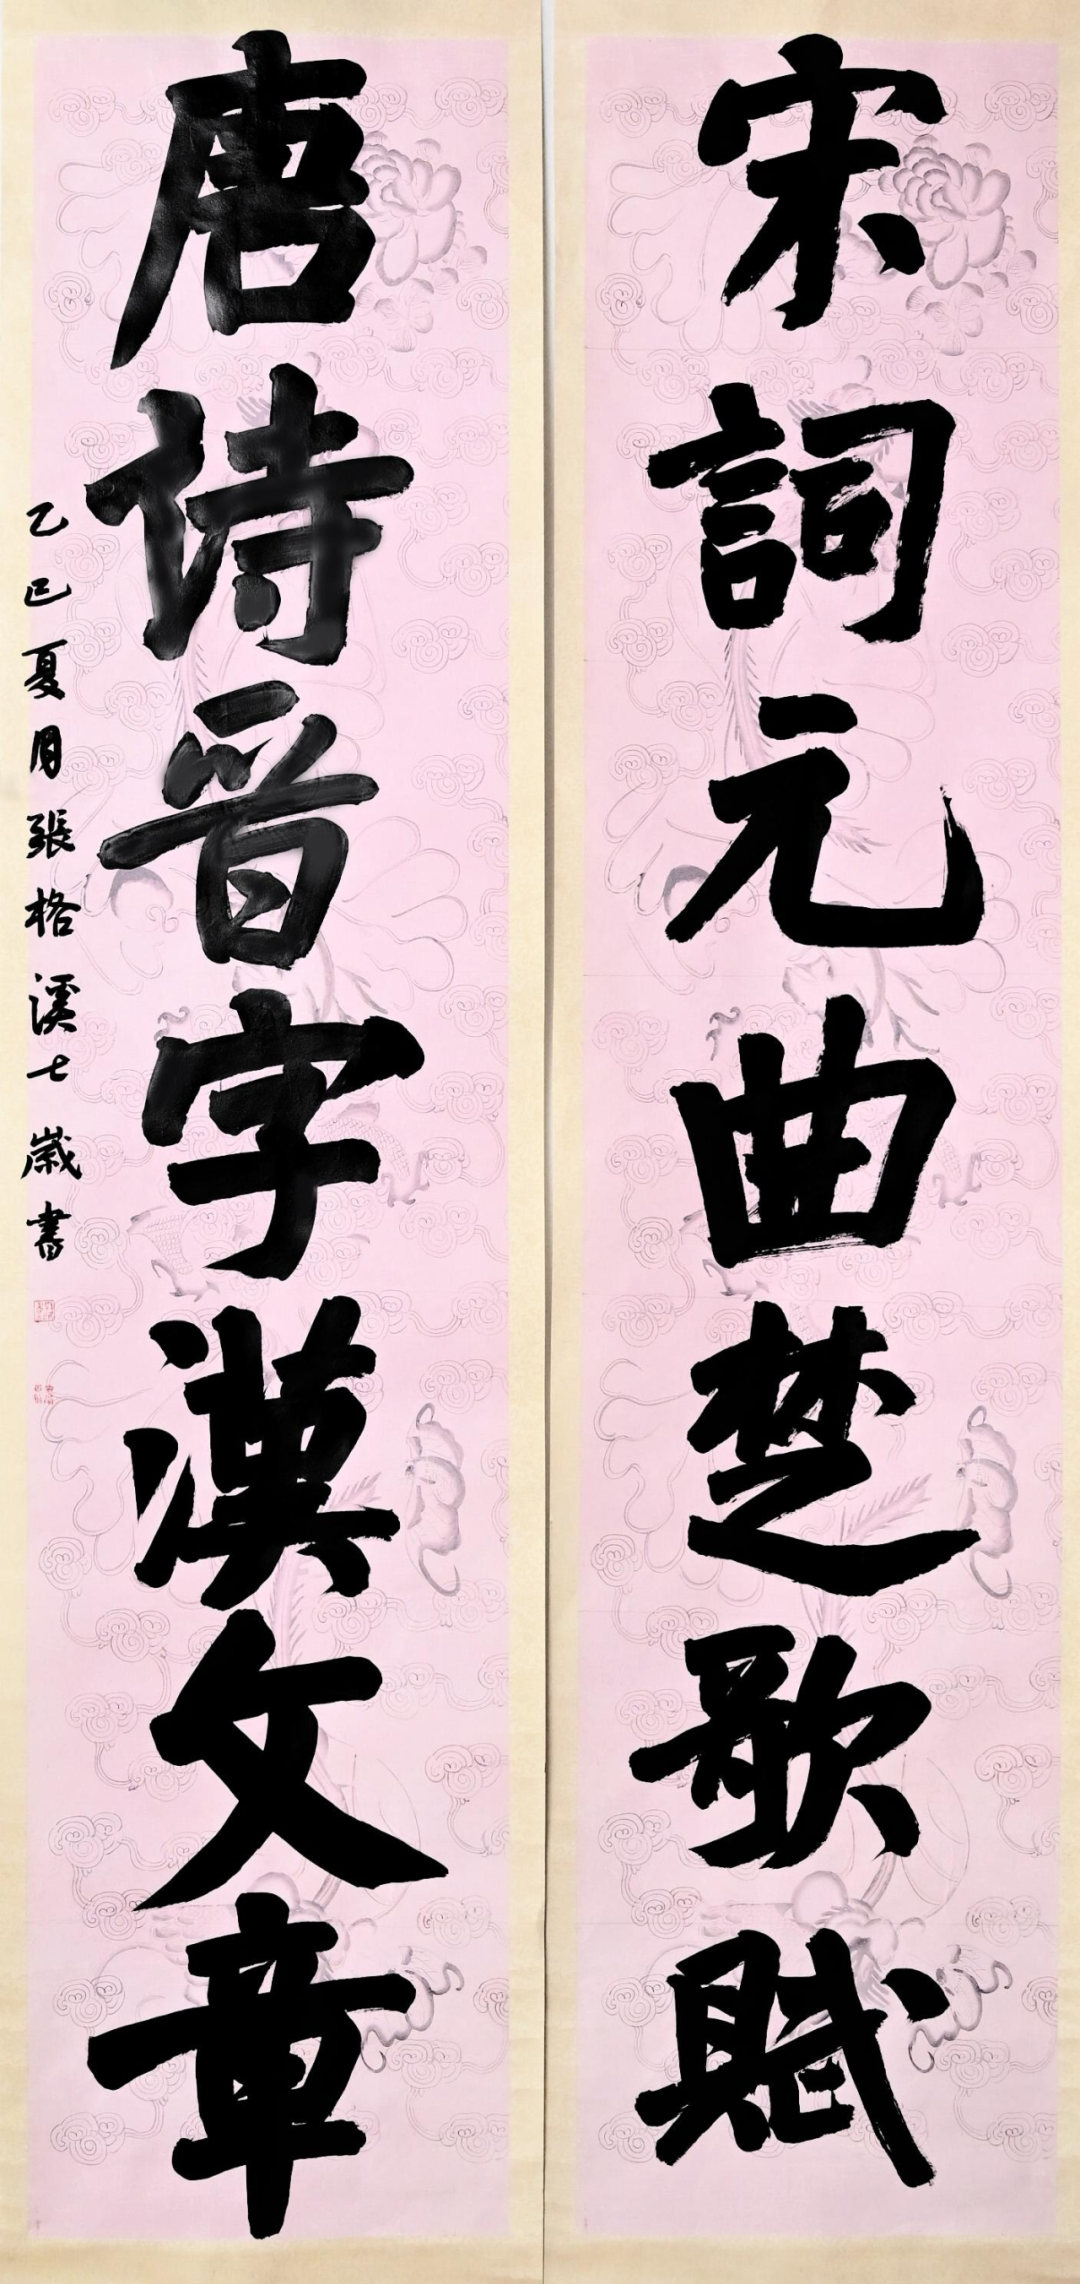 宋詞元曲楚歌賦
唐诗晋字漢文章
乙巳夏月張格溪七歲書